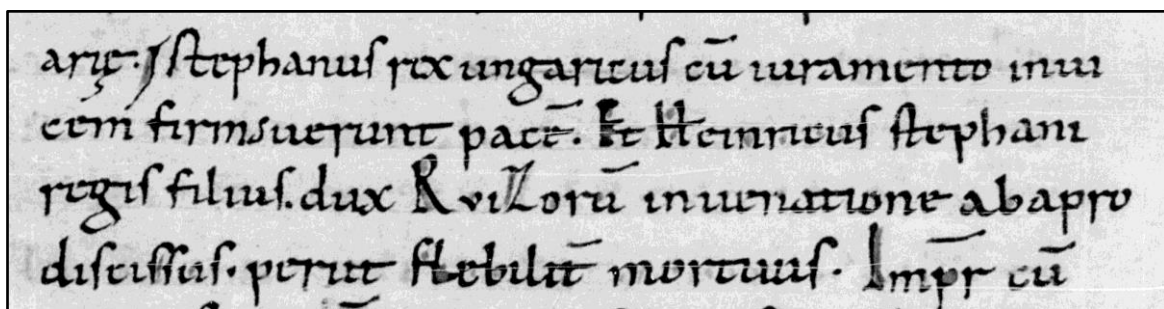 arię. stephanus rex ungaricus cū iuramento inui
cem firmauerunt pacē. Et Heinricus stephani
regis filius. dux Ruizorū in uenatione ab apro
discissus. periit flebilit̄ mortuus. Imp̄r cū